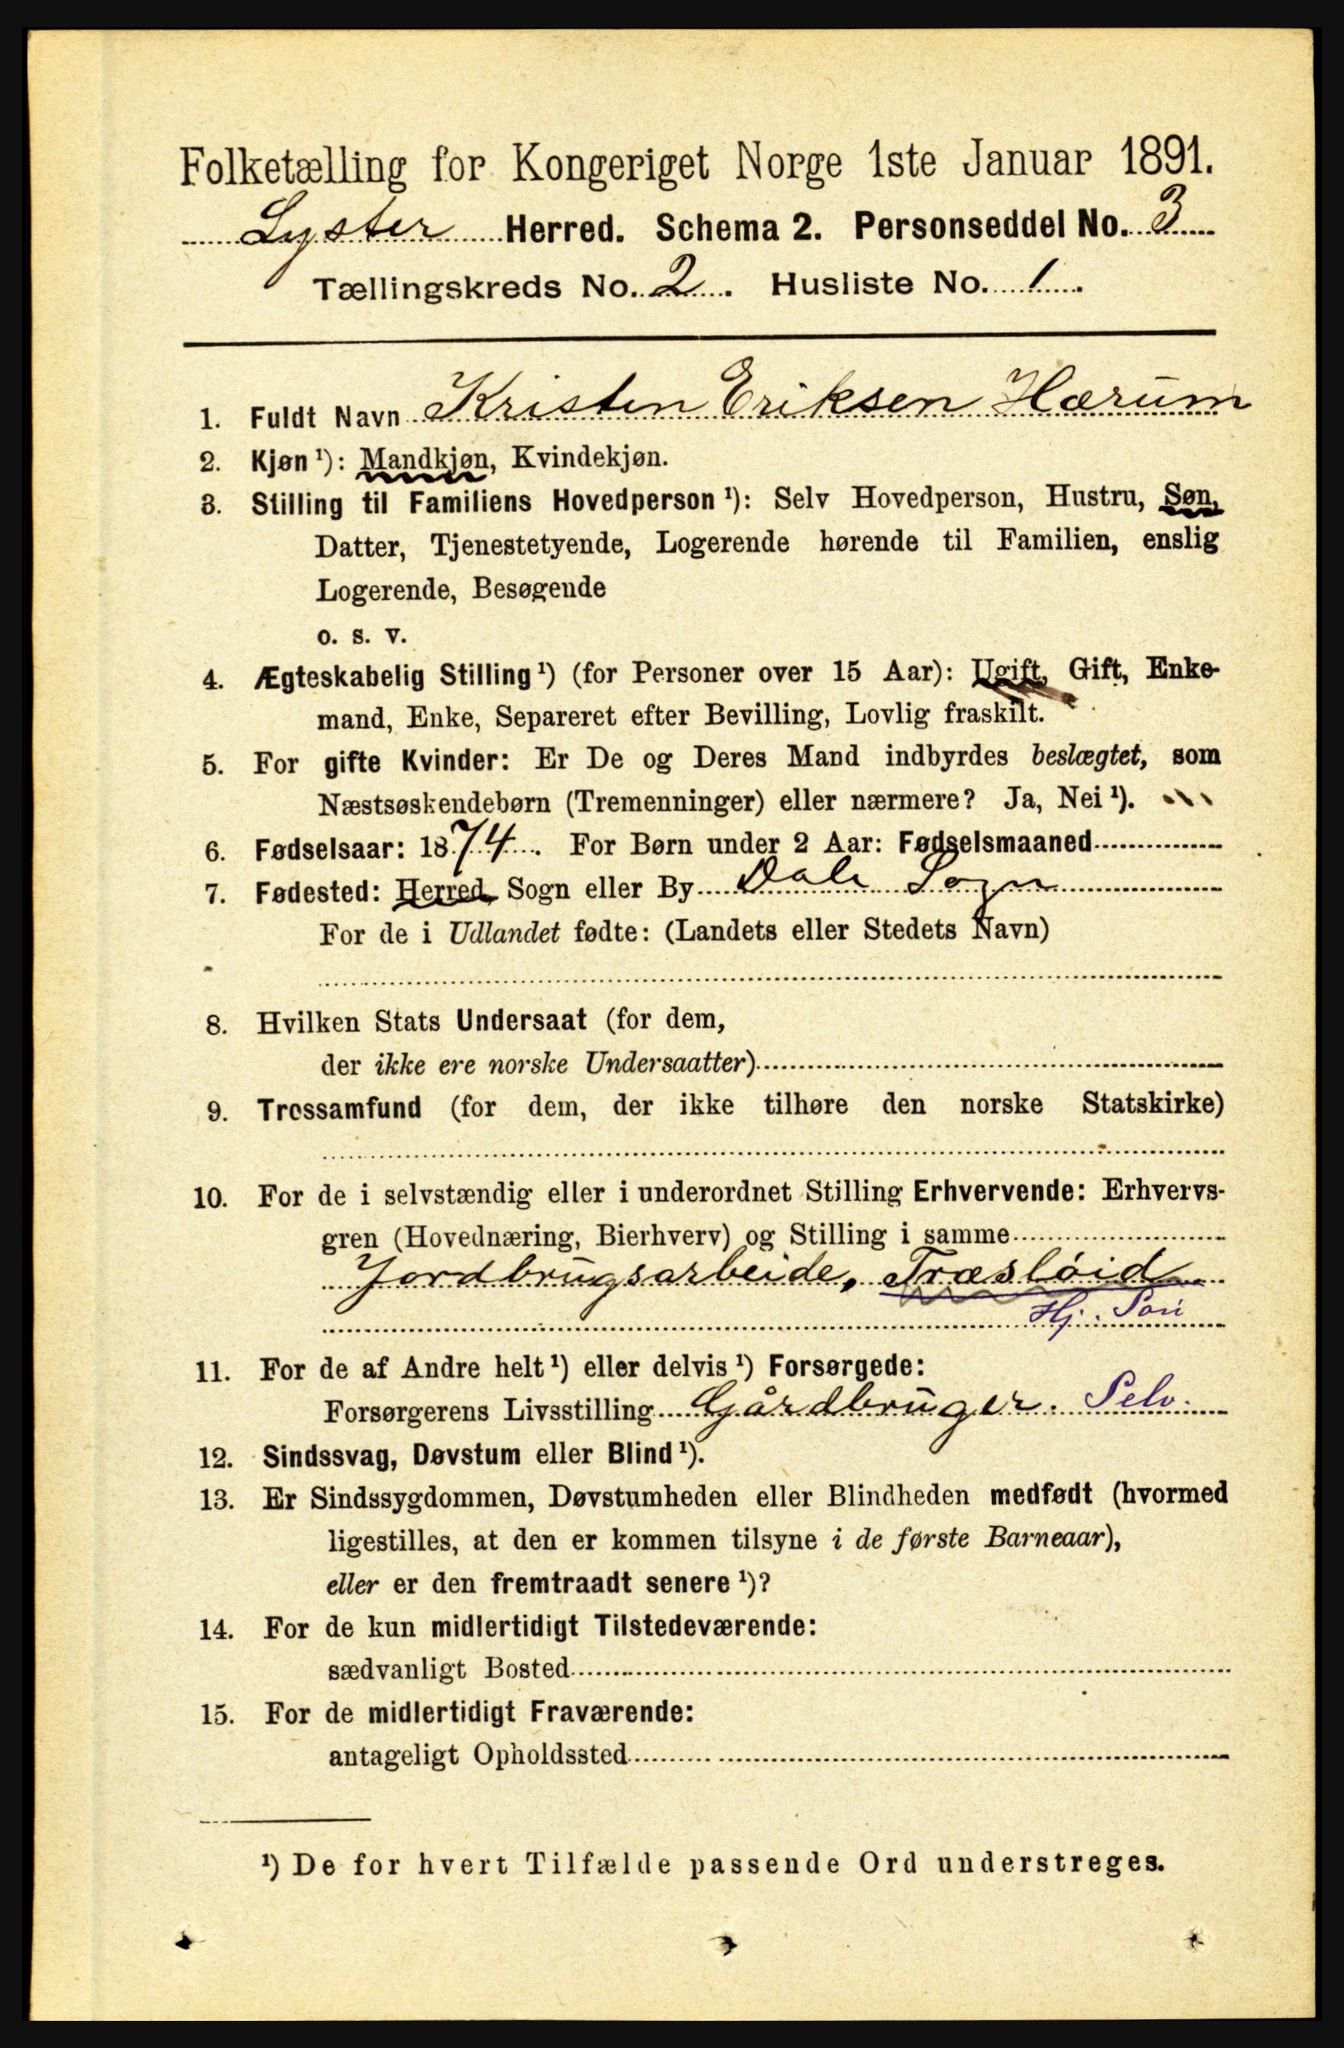 Folketælling for Kongeriget Norge 1ste Januar 1891.
Lyster Herred. Schema 2. Personseddel No. 3
Tællingskreds No. 2. Husliste No. 1.
1. Fuldt Navn Kristen Eriksen Hærum
2. Kjøn ¹): Mandkjøn, Kvindekjøn.
3. Stilling til Familiens Hovedperson ¹): Selv Hovedperson, Hustru, Søn,
Datter, Tjenestetyende, Logerende hørende til Familien, enslig
Logerende, Besøgende
o. s. v.
4. Ægteskabelig Stilling ¹) (for Personer over 15 Aar): Ugift, Gift, Enke-
mand, Enke, Separeret efter Bevilling, Lovlig fraskilt.
5. For gifte Kvinder: Er De og Deres Mand indbyrdes beslægtet, som
Næstsøskendebørn (Tremenninger) eller nærmere? Ja, Nei ¹).
6. Fødselsaar: 1874. For Børn under 2 Aar: Fødselsmaaned
7. Fødested: Herred, Sogn eller By Dale Sogn
For de i Udlandet fødte: (Landets eller Stedets Navn)
8. Hvilken Stats Undersaat (for dem,
der ikke ere norske Undersaatter)
9. Trossamfund (for dem, der ikke tilhøre den norske Statskirke)
10. For de i selvstændig eller i underordnet Stilling Erhvervende: Erhvervs-
gren (Hovednæring, Bierhverv) og Stilling i samme
Jordbrugsarbeide, Træsløid
Hj. Søn
11. For de af Andre helt ¹) eller delvis ¹) Forsørgede:
Forsørgerens Livsstilling Gårdbruger. Selv.
12. Sindssvag, Døvstum eller Blind ¹).
13. Er Sindssygdommen, Døvstumheden eller Blindheden medfødt (hvormed
ligestilles, at den er kommen tilsyne i de første Barneaar),
eller er den fremtraadt senere ¹)?
14. For de kun midlertidigt Tilstedeværende:
sædvanligt Bosted
15. For de midlertidigt Fraværende:
antageligt Opholdssted
¹) De for hvert Tilfælde passende Ord understreges.